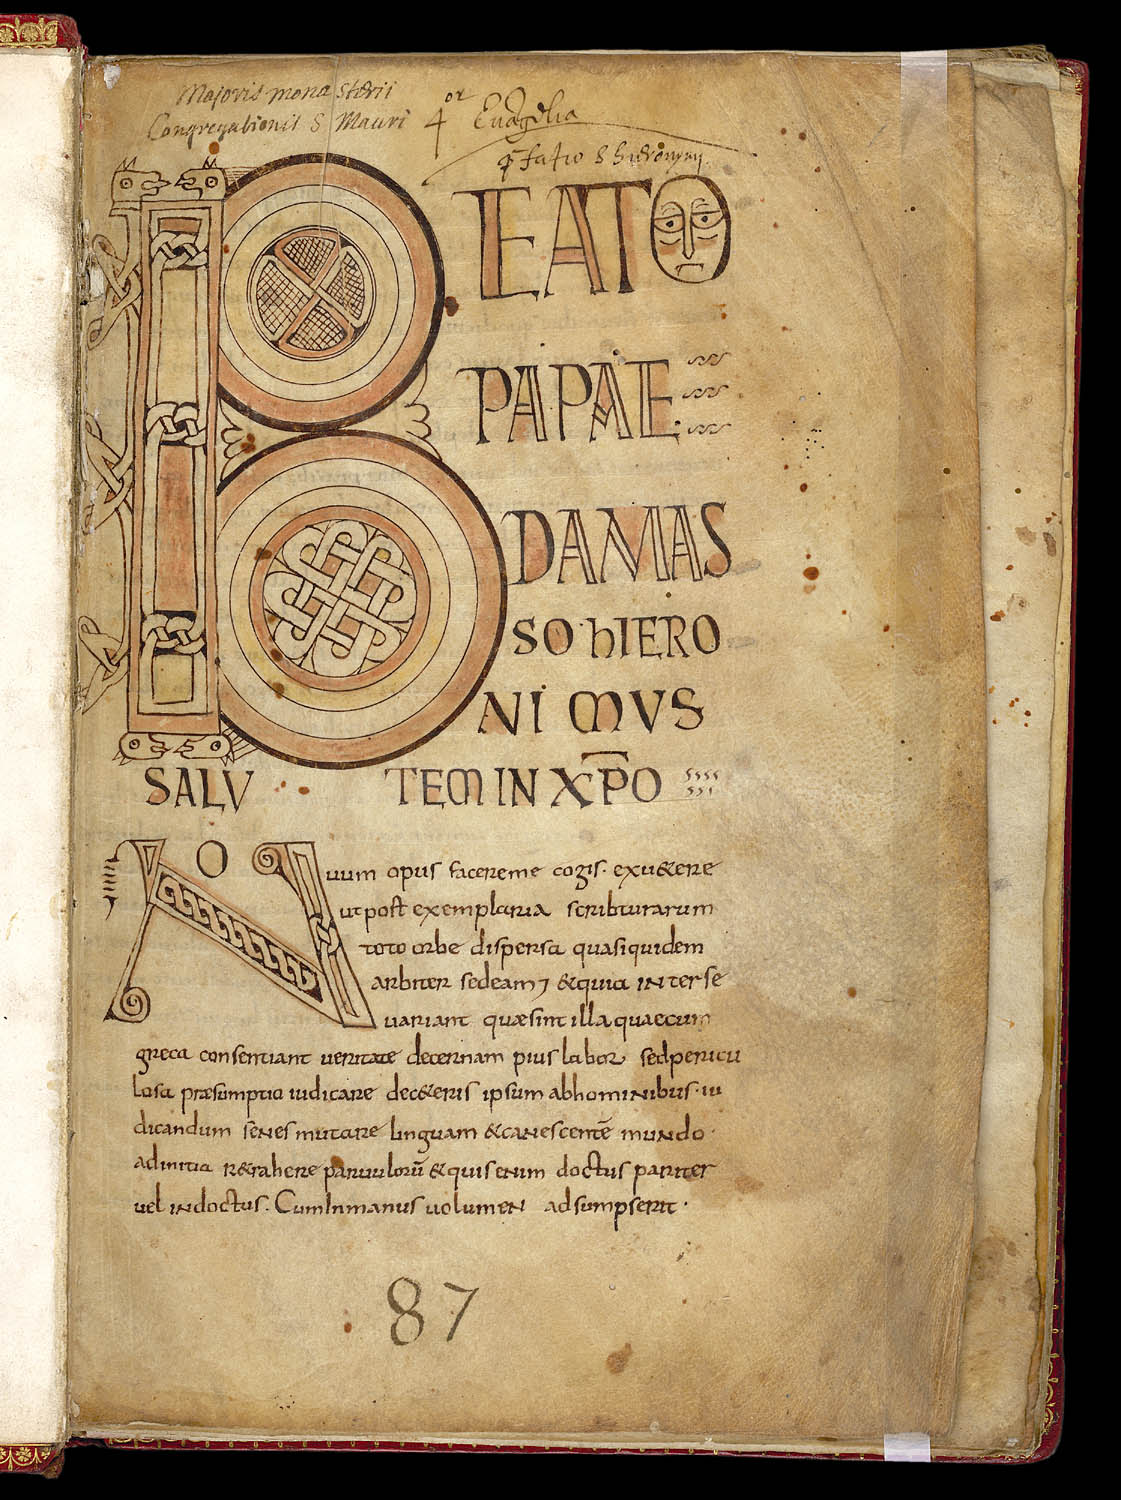 Majoris monasterii
Congregationis S Mauri
4or Euāgelia
pfatio S hieronymj
BEATO
PAPAE
DAMAS
SO hIERO
NIMUS
SALV TEM IN XPO
NO uum opus facereme cogis. exu&ere
ut post exemplaria scribturarum
toto orbe dispersa quasi quidem
arbiter sedeam; & quia inter se
uariant quæ sint illa quae cum
greca consentiant ueritate decernam pius labor sed pericu
losa præsumptio iudicare dec&eris ipsum ab hominibus. iu
dicandum senes mutare linguam & canescentē mundo.
ad initia r&rahere paruulorū & quis enim doctus pariter
uel indoctus. Cum In manus uolumen adsumpserit.
87